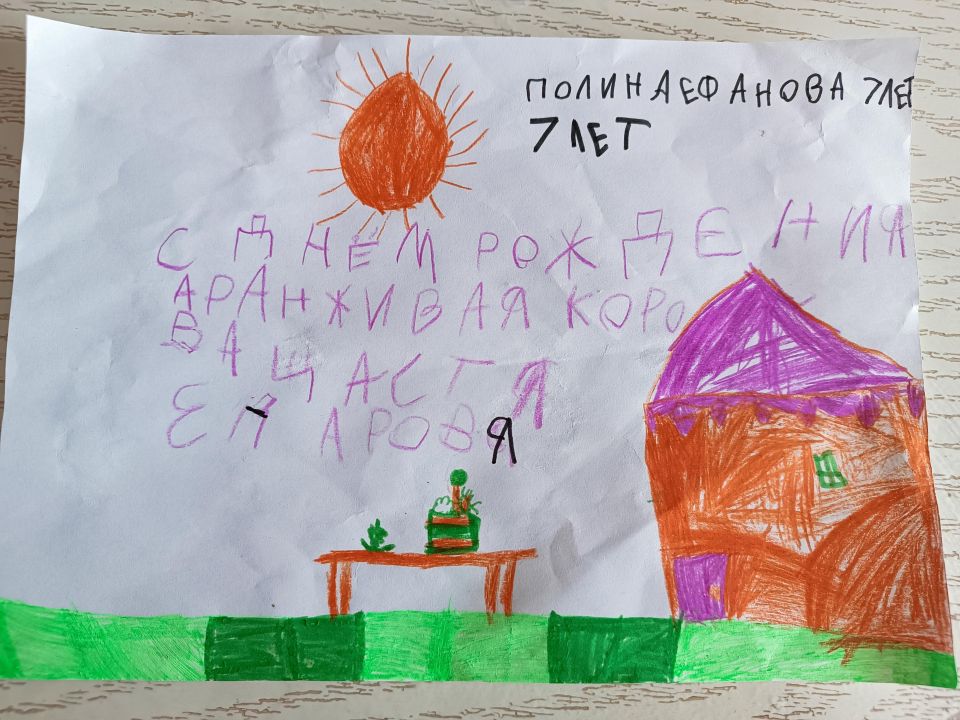 ПОЛИНА ЕФАНОВА 7ЛЕТ
7 ЛЕТ
С ДНЁМ РОЖДЕНИЯ
АРАНЖИВАЯ КОРО
ВА ЩАСТЯ
АРОВЯ